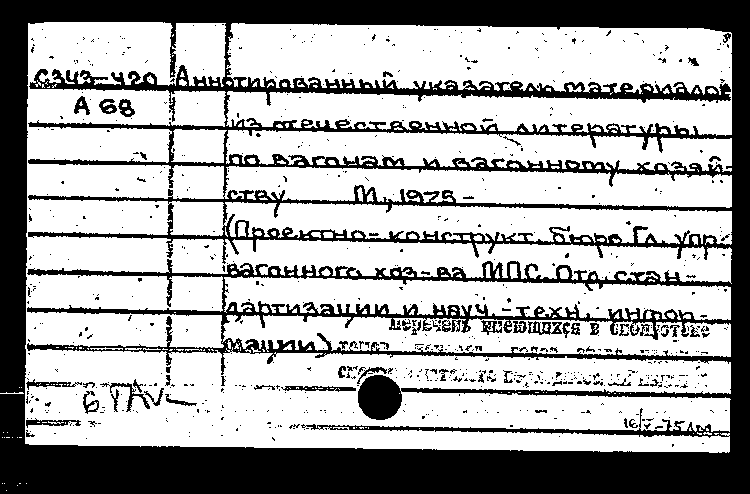 С343-420 Аннотированный указатель материалов
А 68
из отечественной литературы
по вагонам и вагонному хозяй-
ству М., 1975-
(Проектно-конструкт. бюро Гл. упр.
вагонного хоз-ва МПС. Отд. стан-
дартизации и науч.-техн. инфор-
перечень имеющихся в библиотеке
мации)
16/V-75